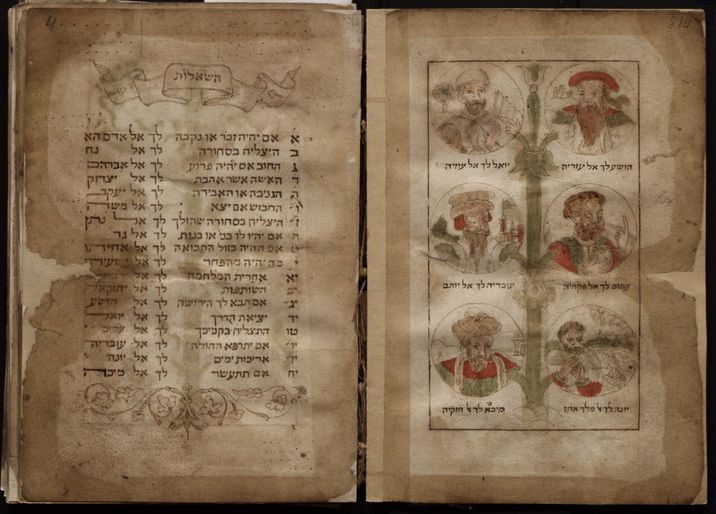 4
השאלות
א אם יהיה זכר או נקבה לך אל אדם הא
ב היצליח בסחורה לך אל נח
ג החוב אם יהיה פרוע לך אל אברהם
ד האשה אשר אהבת לך אל יצחק
ה הגניבה או האבידה לך אל יעקב
ו' החבוש אם יצא לך אל משה
ז' היצליח בסחורה שהולך לך אל נתן
ח אם יהיו לו בני' או בנות לך אל גד
ט אם תהיה בזול התבואה לך אל
י מה יהיה מהפחד לך אל ישעיהו
יא אחרית המלחמה לך אל
יב השותפות לך אל יחזקאל
יג אם תבא לך הירושה לך אל הושע
יד יציאת הדרך לך אל יואל
טו התצליח בקנינך לך אל עמוס
יו' אם יתרפא החולה לך אל עובדיה
יז' אריכות ימים לך אל יונה
יח אם תתעשר לך אל מיכה
819
הושע לך אל עוזיה
יואל לך אל עוזיה
עמוס לך אל פקחיה
עובדיה לך אל יותם
יונה לך אל מלך אחז
מיכא לך אל חזקיה